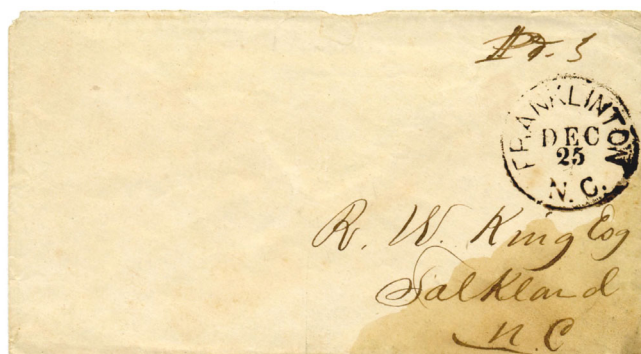 Pd. 3
FRANKLINTON
DEC
25
N.C.
R. W. King Esq
Falkland
N.C